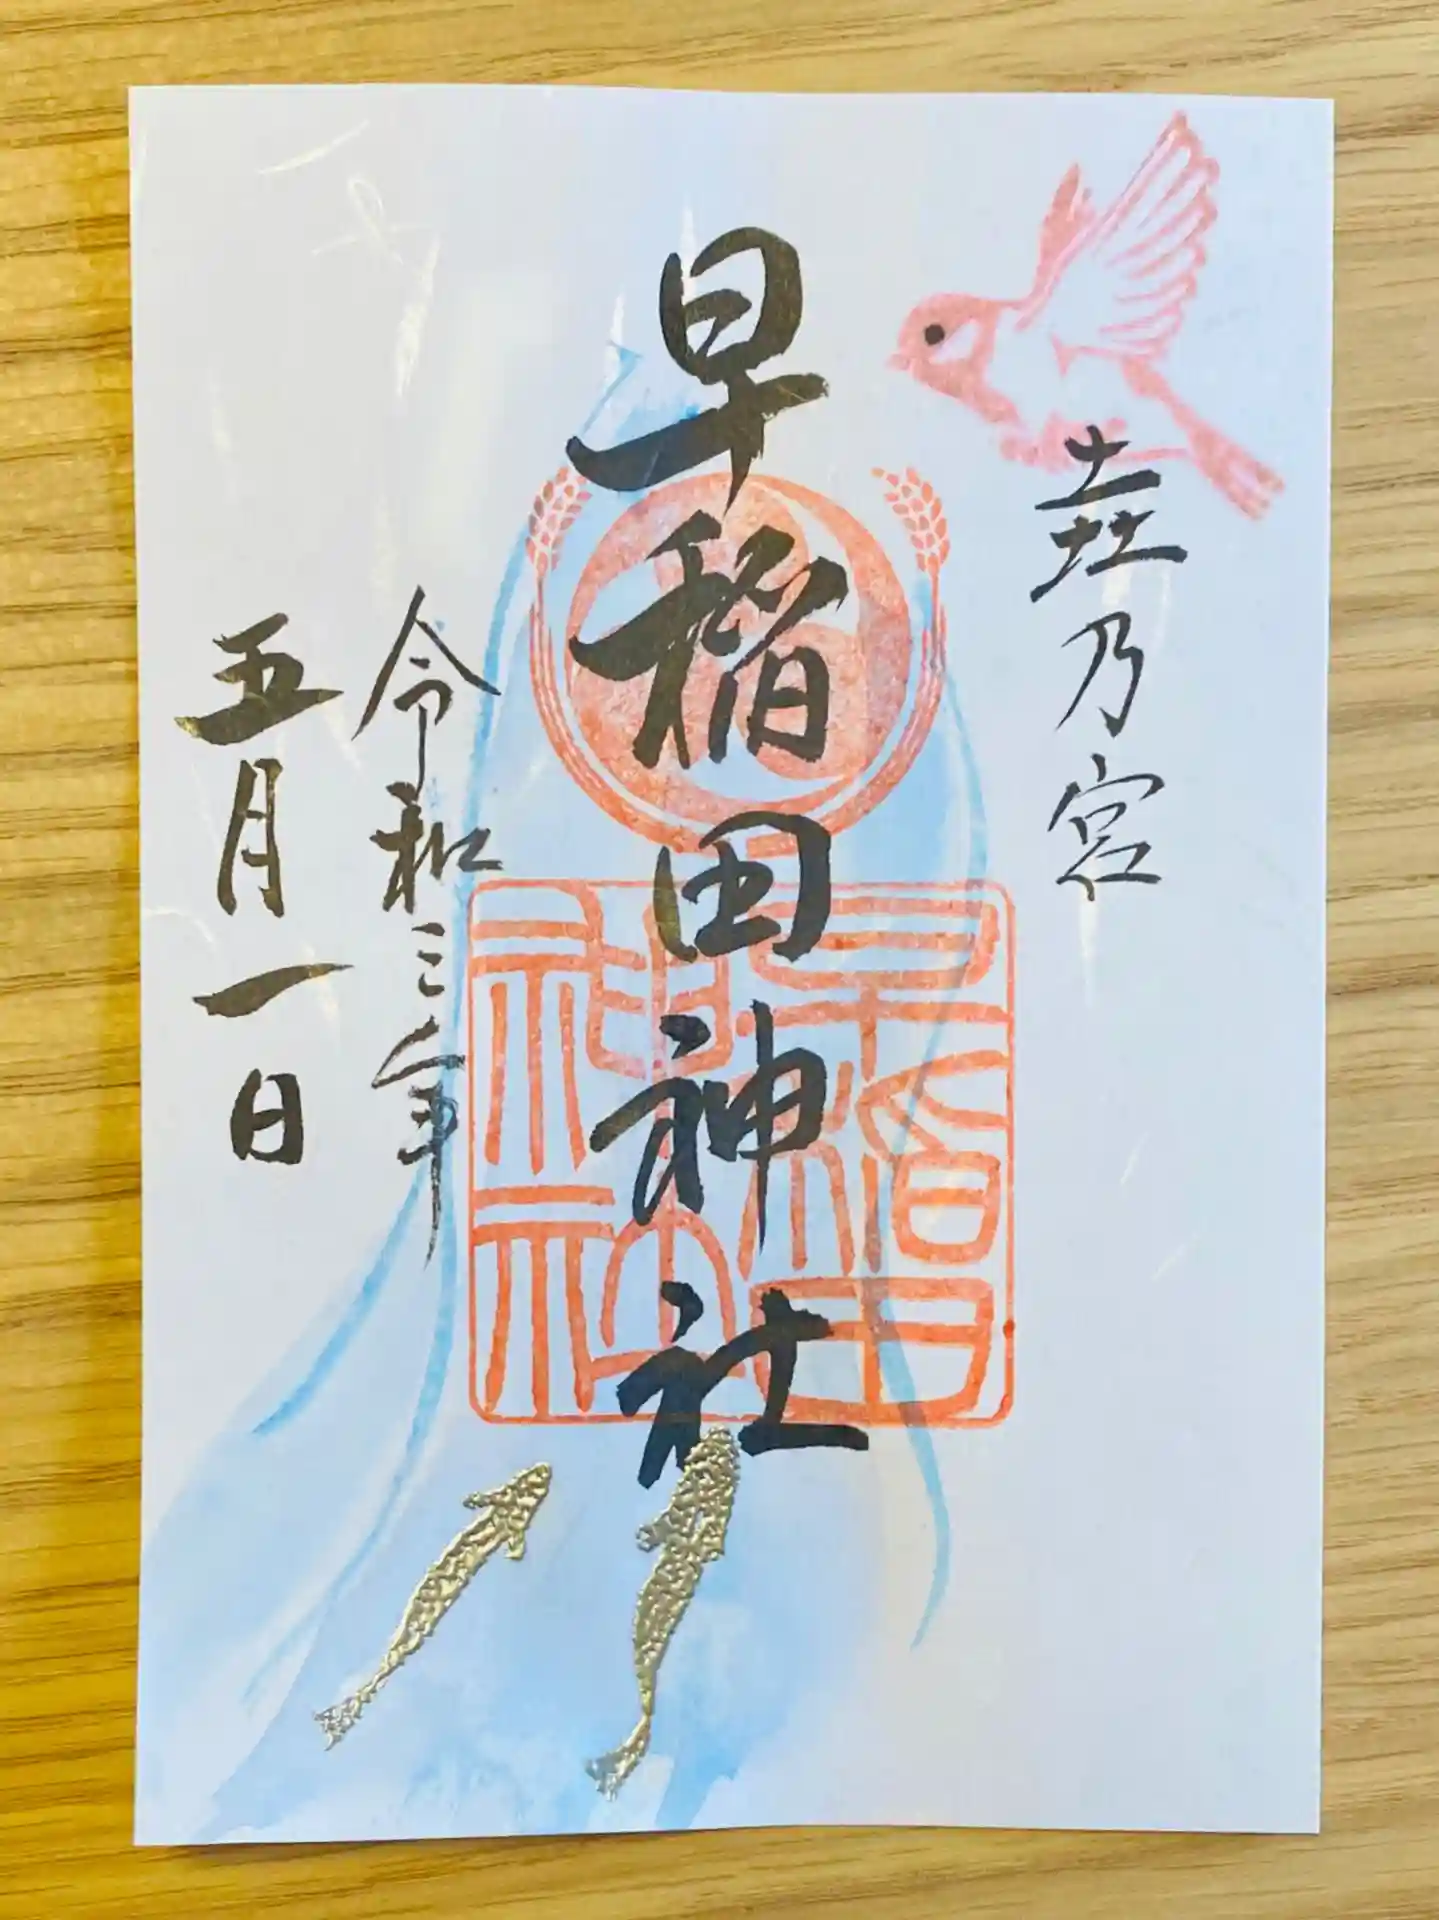 垚乃宮
早稲田神社
令和三年
五月一日
早稲田
神社